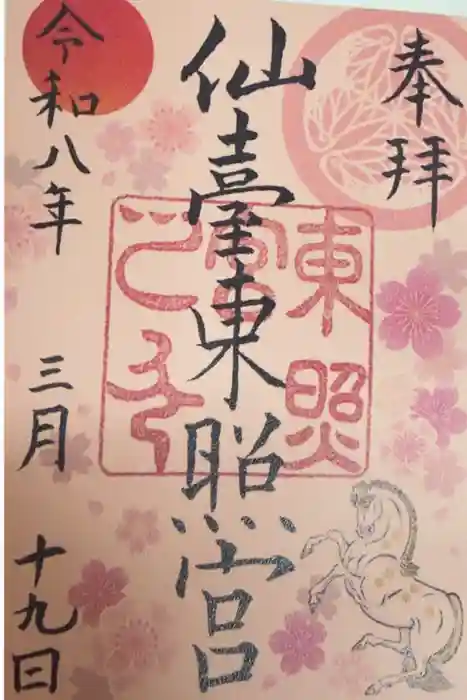 奉拝
仙臺東照宮
東照
宮
令和八年
三月
十九日